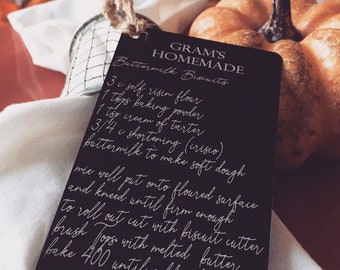 GRAM'S
HOMEMADE
Buttermilk Biscuits
3 c self risin flour
1 tbps baking powder
1 tsp cream of tarter
3/4 c shortening (crisco)
buttermilk to make soft dough
mix well put onto floured surface
and kneed until firm enough
to roll out cut with biscuit cutter
brush Tops with melted butter
bake 400 until